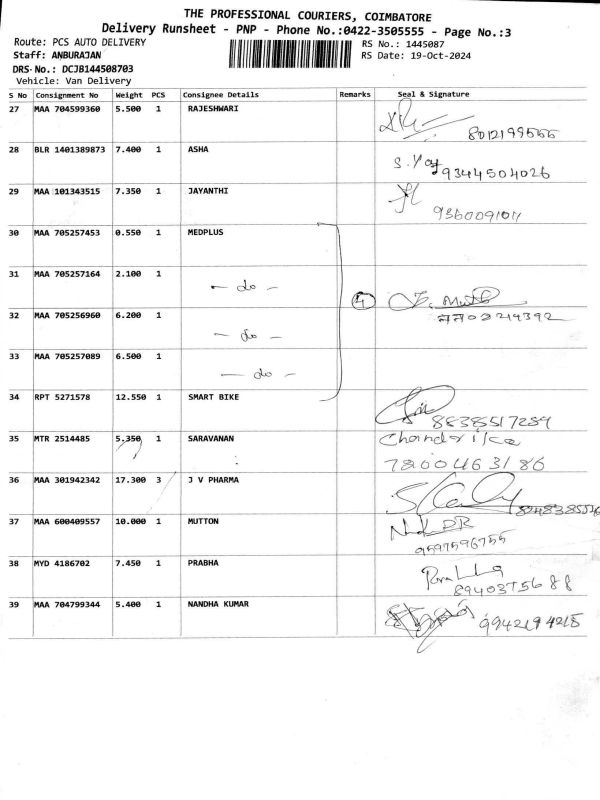 THE PROFESSIONAL COURIERS, COIMBATORE
Delivery Runsheet - PNP - Phone No.:0422-3505555 - Page No.:3
Route: PCS AUTO DELIVERY RS No.: 1445087
Staff: ANBURAJAN RS Date: 19-Oct-2024
DRS-No.: DCJB144508703
Vehicle: Van Delivery
S No Consignment No Weight PCS Consignee Details Remarks Seal & Signature
27 MAA 704599360 5.500 1 RAJESHWARI
28 BLR 1401389873 7.400 1 ASHA
9344504026
29 MAA 101343515 7.350 1 JAYANTHI
30 MAA 705257453 0.550 1 MEDPLUS
31 MAA 705257164 2.100 1
- do -
4
32 MAA 705256960 6.200 1
- do -
33 MAA 705257089 6.500 1
- do -
34 RPT 5271578 12.550 1 SMART BIKE
8838517289
35 MTR 2514485 5.350 1 SARAVANAN
36 MAA 301942342 17.300 3 J V PHARMA
37 MAA 600409557 10.000 1 MUTTON
9597596755
38 MYD 4186702 7.450 1 PRABHA
8940375688
39 MAA 704799344 5.400 1 NANDHA KUMAR
9942194215